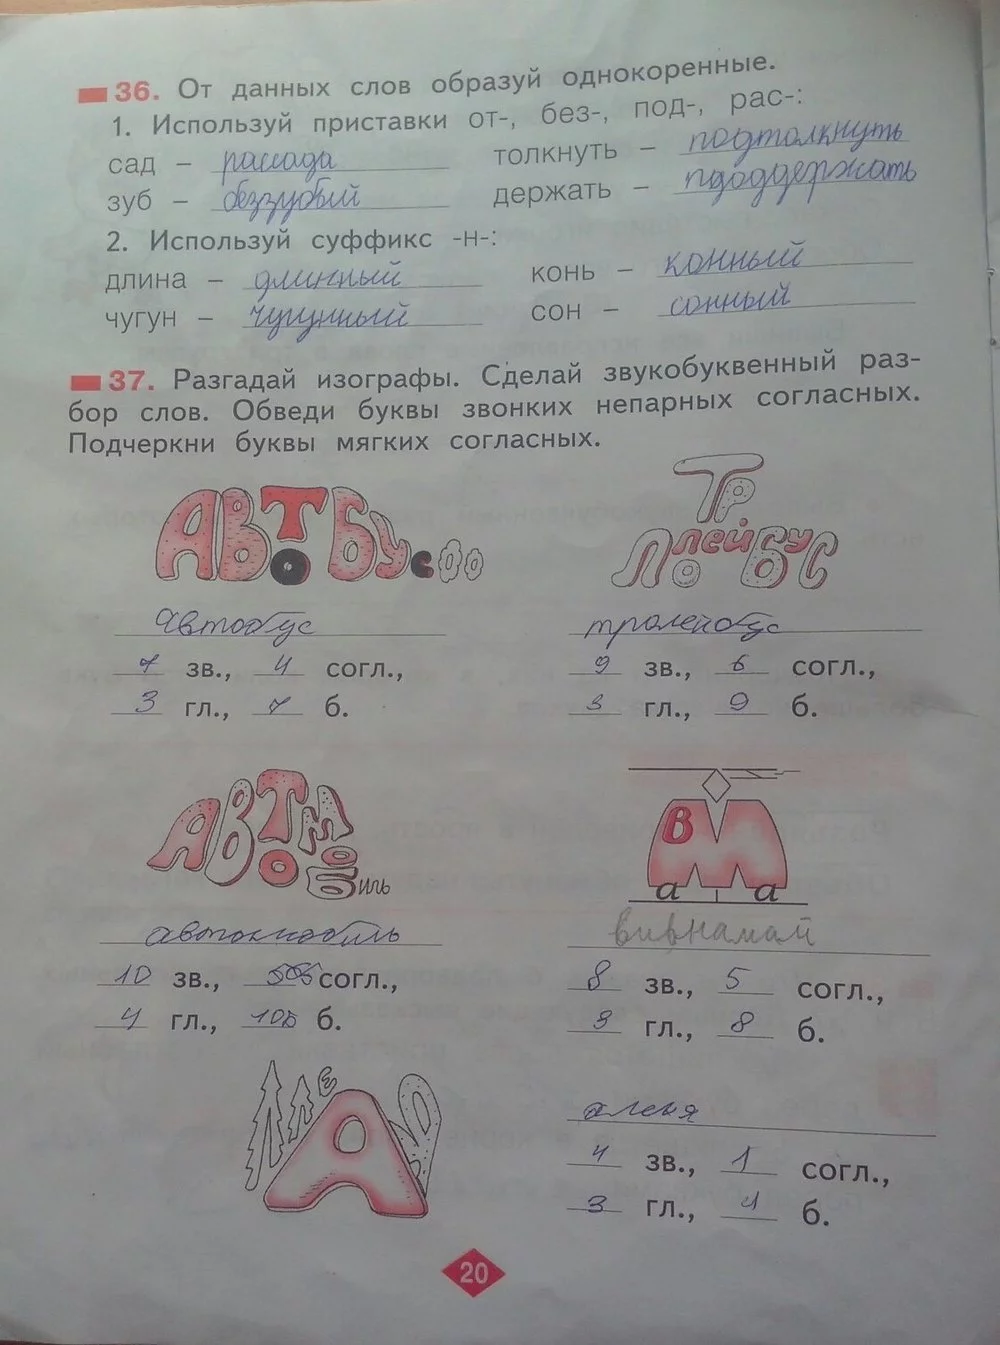 36. От данных слов образуй однокоренные.
1. Используй приставки от-, без-, под-, рас-:
сад – рассада толкнуть – подтолкнуть
зуб – беззубый держать – пдоддержать
2. Используй суффикс -н-:
длина – длинный конь – конный
чугун – чугунный сон – сонный
37. Разгадай изографы. Сделай звукобуквенный раз-
бор слов. Обведи буквы звонких непарных согласных.
Подчеркни буквы мягких согласных.
АВТОБУС ТРОЛЛЕЙБУС
автобус тролейобус
7 зв., 4 согл., 9 зв., 6 согл.,
3 гл., 7 б. 3 гл., 9 б.
АВТОМОБИЛЬ В М а а
10 зв., согл., 8 зв., 5 согл.,
4 гл., б. 3 гл., 8 б.
АЛЛЕЯ
алеея
4 зв., 1 согл.,
3 гл., 4 б.
20